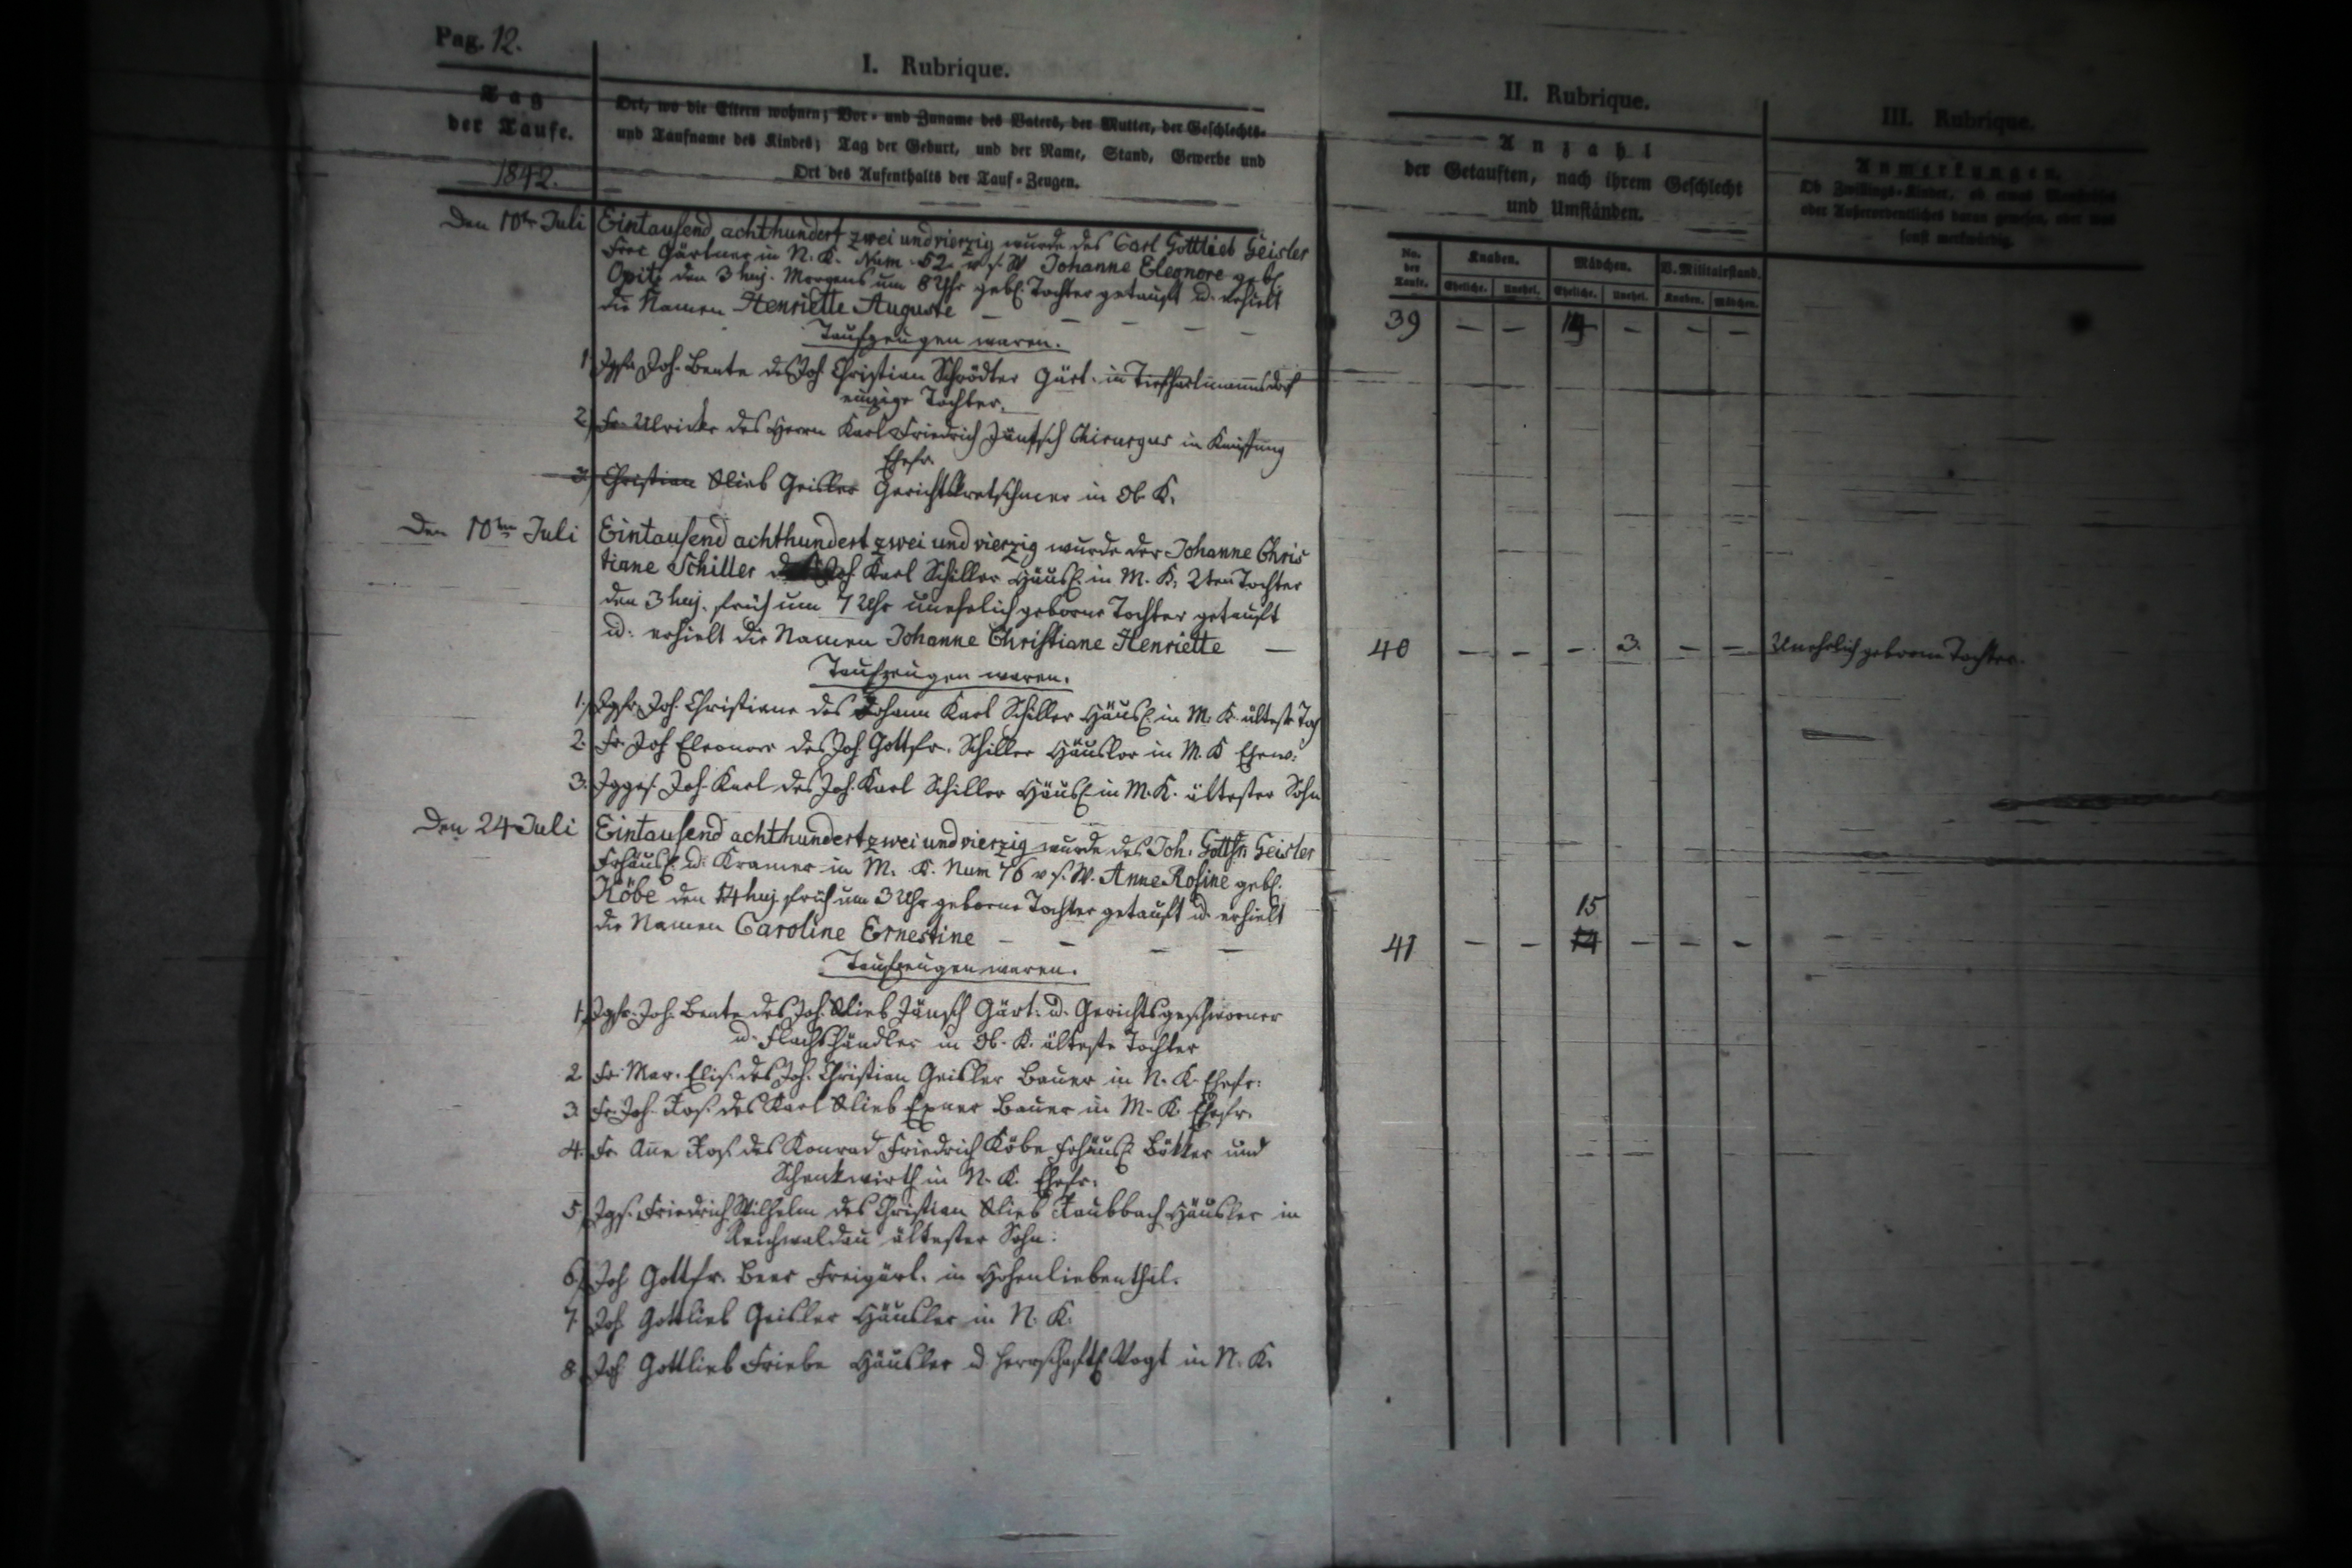 Pag. 12.
I. Rubrique.
II. Rubrique.
III. Rubrique.
Tag
der Taufe.
1842.
Ort, wo die Eltern wohnen; Vor- und Zuname des Vaters, der Mutter, der Geschlechts-
und Taufname des Kindes; Tag der Geburt, und der Name, Stand, Gewerbe und
Ort des Aufenthalts der Tauf-Zeugen.
Anzahl
der Getauften, nach ihrem Geschlecht
und Umständen.
Anmerkungen.
Ob Zwillings-Kinder, ob etwas
oder Außerordentliches daran gewesen, oder was
sonst merkwürdig.
No. der Taufe.
Knaben.
Mädchen.
V. Militairstand.
Eheliche.
Unehel.
Eheliche.
Unehel.
Knaben.
Mädchen.
Den 10ten Juli
Eintausend achthundert zwei und vierzig wurde des Carl Gottlieb Geisler
Frei Gärtner in N. K. Num. 52. v. s. W Johanne Eleonore geb.
Opitz den 3 huj. Morgens um 8 Uhr geb. Tochter getauft u. erhielt
die Namen Henriette Auguste — — — — —
39 — — — — —
Taufzeugen waren.
1. Jgfr. Joh. Beate des Joh. Christian Schrödter Gärt. in Tiefhartmannsdorf
einzige Tochter.
2. Fr. Ulricke des Herrn Karl Friedrich Jäntsch Chirurgus in Kauffung
Ehefr.
3. Christian Glieb Geisler Gerichtskretschmer in Ob. K.
Den 10ten Juli
Eintausend achthundert zwei und vierzig wurde der Johanne Chris
tiane Schiller Joh. Karl Schiller Häusl. in M. K. 2ten Tochter
den 3 huj. früh um 7 Uhr unehelich geborne Tochter getauft
u. erhielt die Namen Johanne Christiane Henriette —
40 — — — 3. — — Unehelich geborne Tochter.
Taufzeugen waren.
1. Jgfr. Joh. Christiane des Johann Karl Schiller Häusl. in M. K. älteste Toch
2. Fr. Joh Eleonore des Joh. Gottfr. Schiller Häusler in M. K Ehew.
3. Jgges. Joh. Karl des Joh. Karl Schiller Häusl. in M. K. ältester Sohn
Den 24 Juli
Eintausend achthundert zwei und vierzig wurde des Joh. Gottfr. Geisler
Frhäusl. u. Kramer in M. K. Num 76 v. s. W. Anne Rosine geb.
Köbe den 14 huj. früh um 3 Uhr geborne Tochter getauft u. erhielt
die Namen Caroline Ernestine — — — —
15
41 — — 14 — — —
Taufzeugen waren.
1. Jgfr. Joh. Beate des Joh. Glieb Jäntsch Gärt. u. Gerichtsgeschworner
u. Flachshändler in Ob. K. älteste Tochter
2. Fr. Mar. Elis. des Joh. Christian Geisler Bauer in N. K. Ehefr.
3. Fr. Joh. Ros. des Karl Glieb Exner Bauer in M. K. Ehefr.
4. Fr. Anne Ros. des Konrad Friedrich Köbe Frhäusl. Bötker und
Schenkwirth in N. K. Ehefr.
5. Jgs. Friedrich Wilhelm des Christian Glieb Raubbach Häusler in
Reichwaldau ältester Sohn.
6. Joh Gottfr. Beer Freigärt. in Hohenliebenthal.
7. Joh. Gottlieb Geisler Häusler in N. K.
8. Joh Gottlieb Friebe Häusler u. herrschaftl. Vogt in N. K.